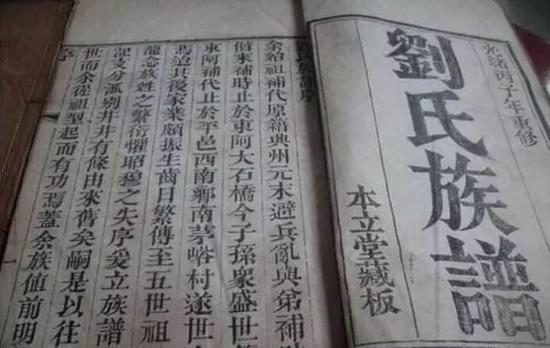 光緒丙子年重修
劉氏族譜
本立堂藏板
族譜序
余始祖補代原籍州元末避兵亂與弟補
偕來補時止於東阿大石橋今子孫衆盛世
東阿補代止於平邑西南鄉南茅峪村遂世
焉迨其後家業頗振生齒日繁傳至五世祖
龍念族姓之繁衍懼昭穆之失序爰立族譜
記支分派別井井有條由來舊矣嗣是以往
世而余從祖型起而有功焉蓋余族值前明